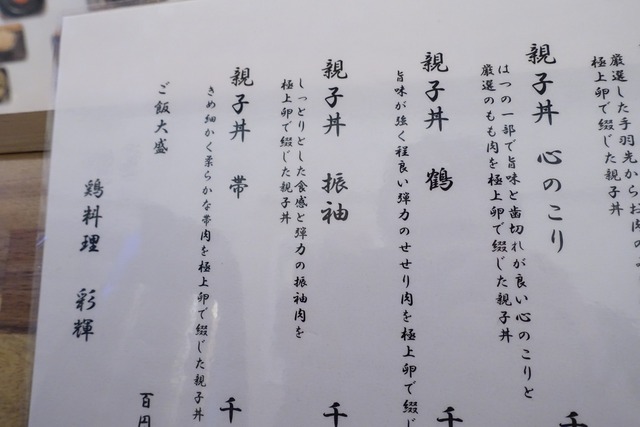 厳選した手羽先からお肉の
極上卵で綴じた親子丼
親子丼 心のこり
はつの一部で旨味と歯切れが良い心のこりと
厳選のもも肉を極上卵で綴じた親子丼
千
親子丼 鶴
旨味が強く程良い弾力のせせり肉を極上卵で綴じ
千
親子丼 振袖
しっとりとした食感と弾力の振袖肉を
極上卵で綴じた親子丼
千
親子丼 帯
きめ細かく柔らかな帯肉を極上卵で綴じた親子丼
千
ご飯大盛
百円
鶏料理 彩輝